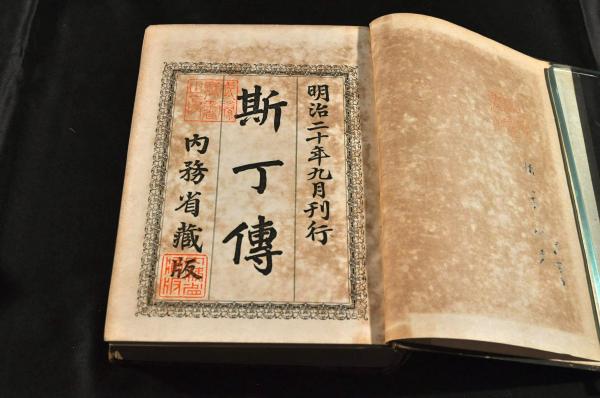 明治二十年九月刊行
斯丁傳
内務省藏版